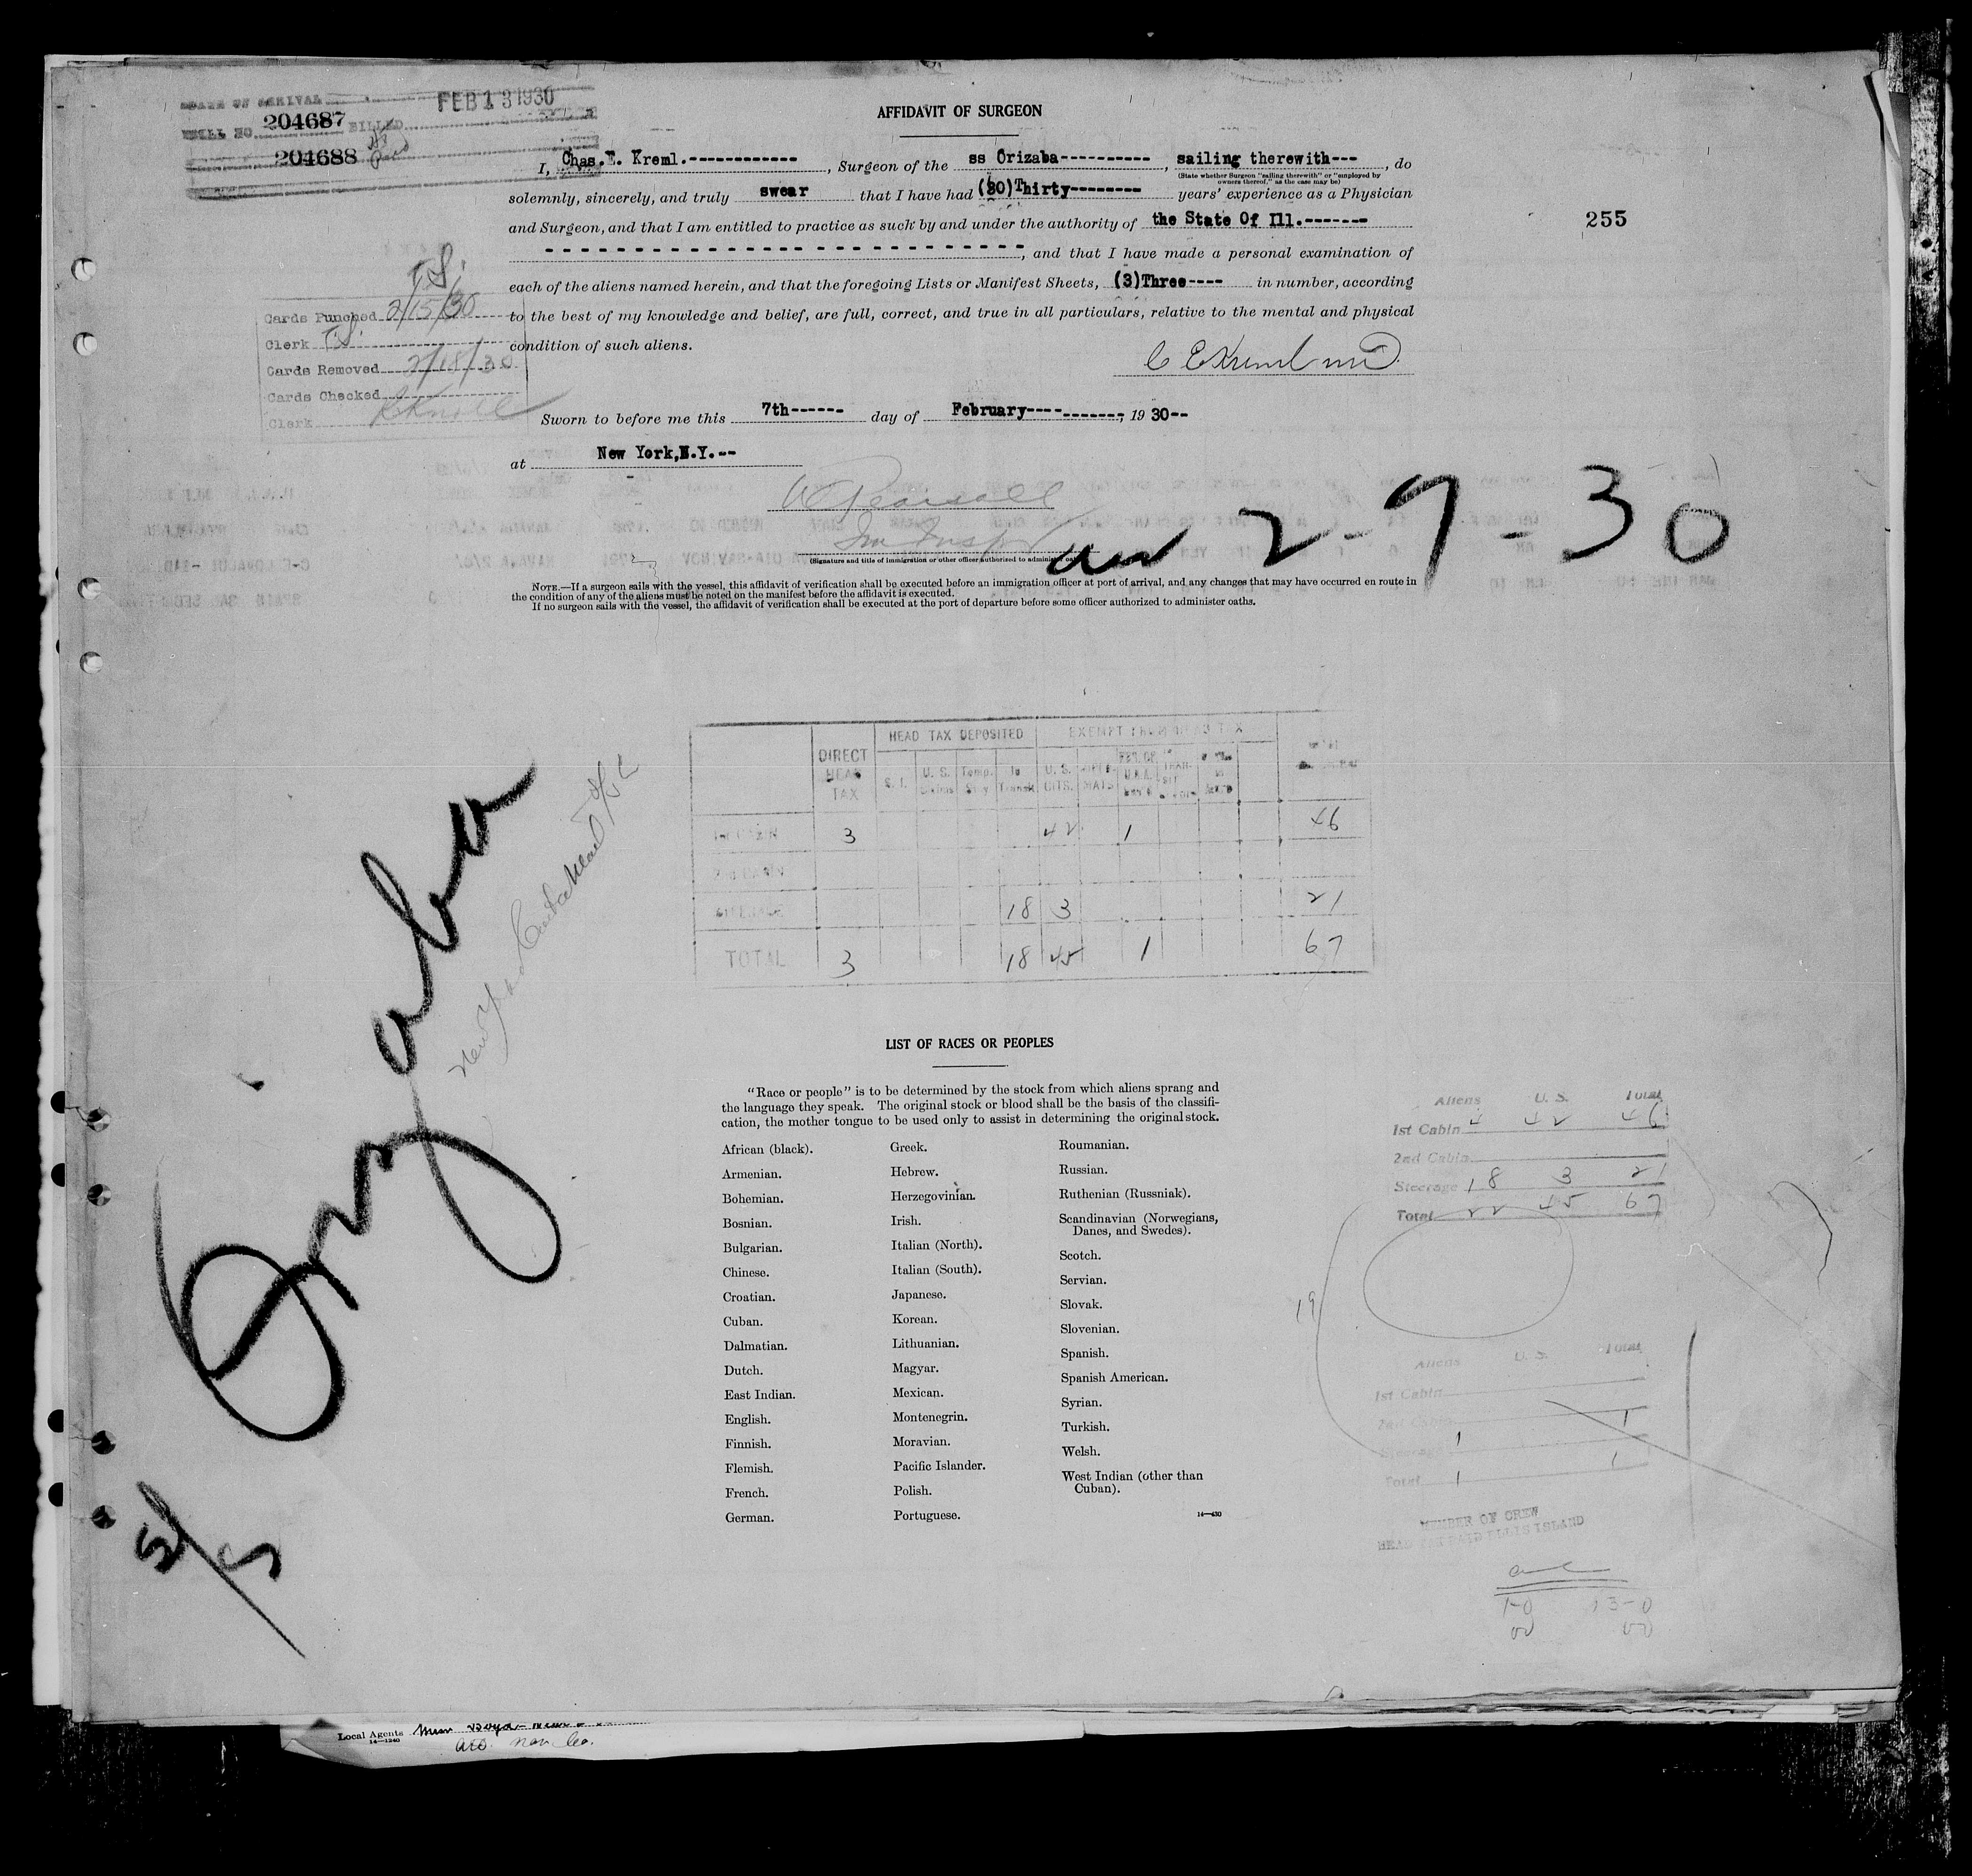 FEB 13 1930
204687 BILLED
204688
AFFIDAVIT OF SURGEON
I, Chas.E. Kreml.------------, Surgeon of the ss Orizaba----------, sailing therewith---, do
(State whether Surgeon "sailing therewith" or "employed by
owners thereof," as the case may be)
solemnly, sincerely, and truly swear that I have had (30)Thirty-------- years' experience as a Physician
and Surgeon, and that I am entitled to practice as such by and under the authority of the State Of Ill.-------
, and that I have made a personal examination of
each of the aliens named herein, and that the foregoing Lists or Manifest Sheets, (3)Three---- in number, according
to the best of my knowledge and belief, are full, correct, and true in all particulars, relative to the mental and physical
condition of such aliens.
255
Cards Punched 2/15/30
Clerk
Cards Removed 2/18/30
Cards Checked
Clerk
C E Kreml MD.
Sworn to before me this 7th------ day of February-----------, 1930--
at New York,N.Y.--
W Pearsall
Im Inspr
(Signature and title of immigration or other officer authorized to administer oaths)
arr 2-9-30
NOTE.—If a surgeon sails with the vessel, this affidavit of verification shall be executed before an immigration officer at port of arrival, and any changes that may have occurred en route in
the condition of any of the aliens must be noted on the manifest before the affidavit is executed.
If no surgeon sails with the vessel, the affidavit of verification shall be executed at the port of departure before some officer authorized to administer oaths.
Orizaba
5/5
DIRECT HEAD TAX
HEAD TAX DEPOSITED
EXEMPT FROM HEAD TAX
S. I. U. S. Temp. Stay In Transit U. S. CITS.
3 42 1 46
18 3 21
TOTAL 3 18 45 1 67
LIST OF RACES OR PEOPLES
"Race or people" is to be determined by the stock from which aliens sprang and
the language they speak. The original stock or blood shall be the basis of the classifi-
cation, the mother tongue to be used only to assist in determining the original stock.
African (black).
Armenian.
Bohemian.
Bosnian.
Bulgarian.
Chinese.
Croatian.
Cuban.
Dalmatian.
Dutch.
East Indian.
English.
Finnish.
Flemish.
French.
German.
Greek.
Hebrew.
Herzegovinian.
Irish.
Italian (North).
Italian (South).
Japanese.
Korean.
Lithuanian.
Magyar.
Mexican.
Montenegrin.
Moravian.
Pacific Islander.
Polish.
Portuguese.
Roumanian.
Russian.
Ruthenian (Russniak).
Scandinavian (Norwegians,
Danes, and Swedes).
Scotch.
Servian.
Slovak.
Slovenian.
Spanish.
Spanish American.
Syrian.
Turkish.
Welsh.
West Indian (other than
Cuban).
14—430
Aliens U. S. Total
1st Cabin 4 42 46
2nd Cabin
Steerage 18 3 21
Total 22 45 67
19
Aliens U. S. Total
1st Cabin
1
1
Total 1 1
MEMBER OF CREW
HEAD TAX PAID ELLIS ISLAND
Local Agents
14—1240